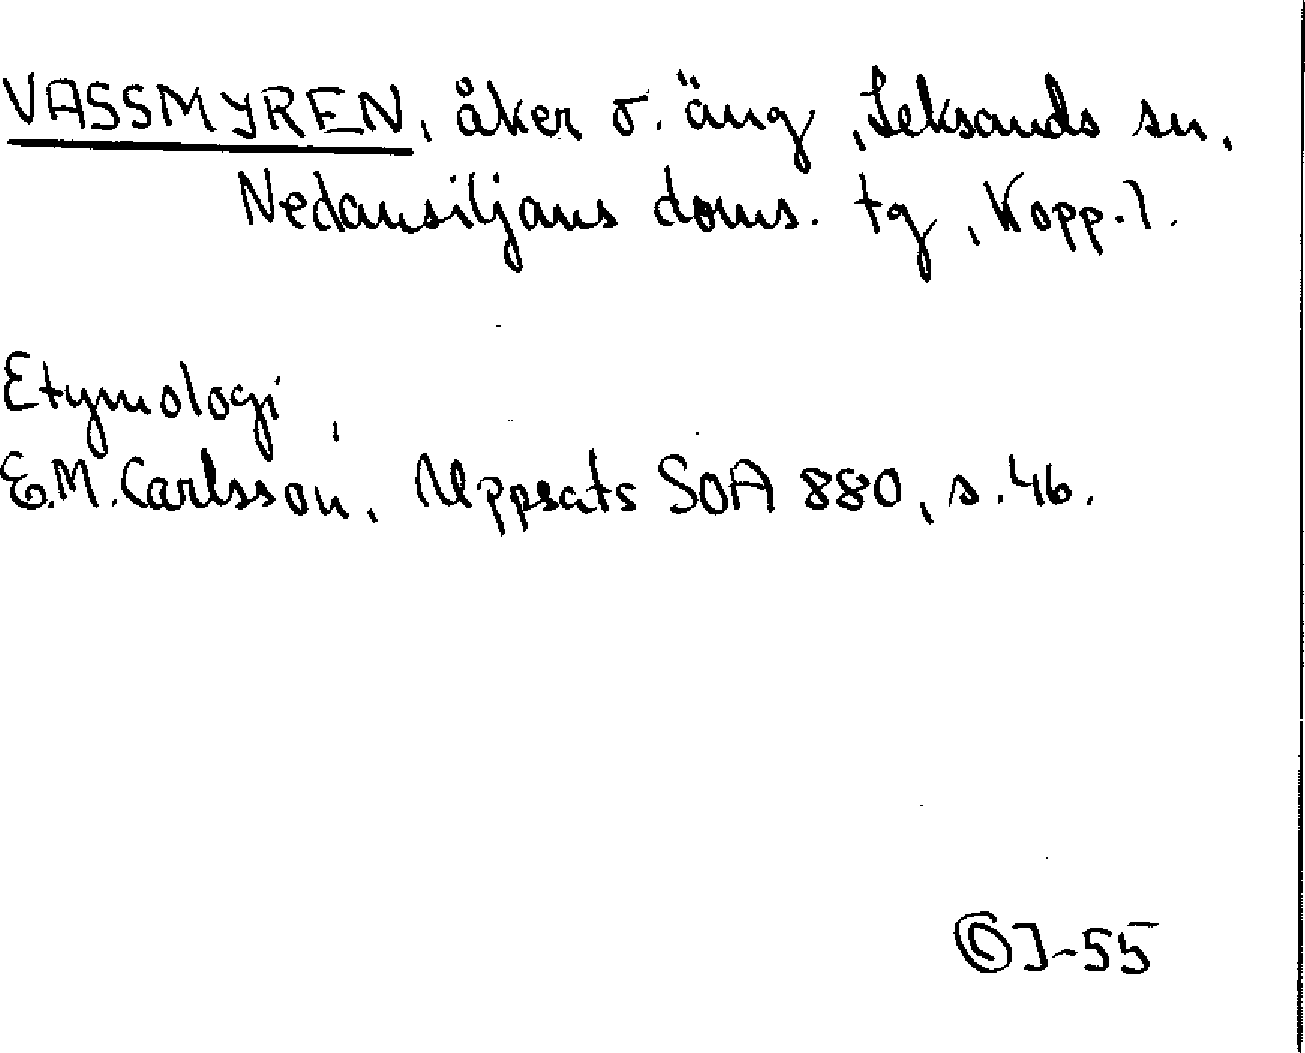 VASSMYREN, åker o. äng, Leksands sn,
Nedansiljans doms. tg, Kopp. l.
Etymologi
E.M. Carlsson, Uppsats SOA 880, s. 46.